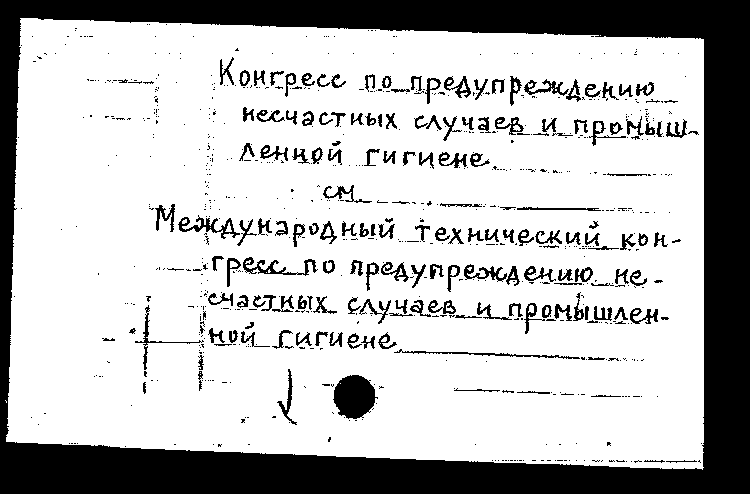 Конгресс по предупреждению
несчастных случаев и промыш-
ленной гигиене.
см.
Международный технический кон-
гресс по предупреждению не-
счастных случаев и промышлен-
ной гигиене